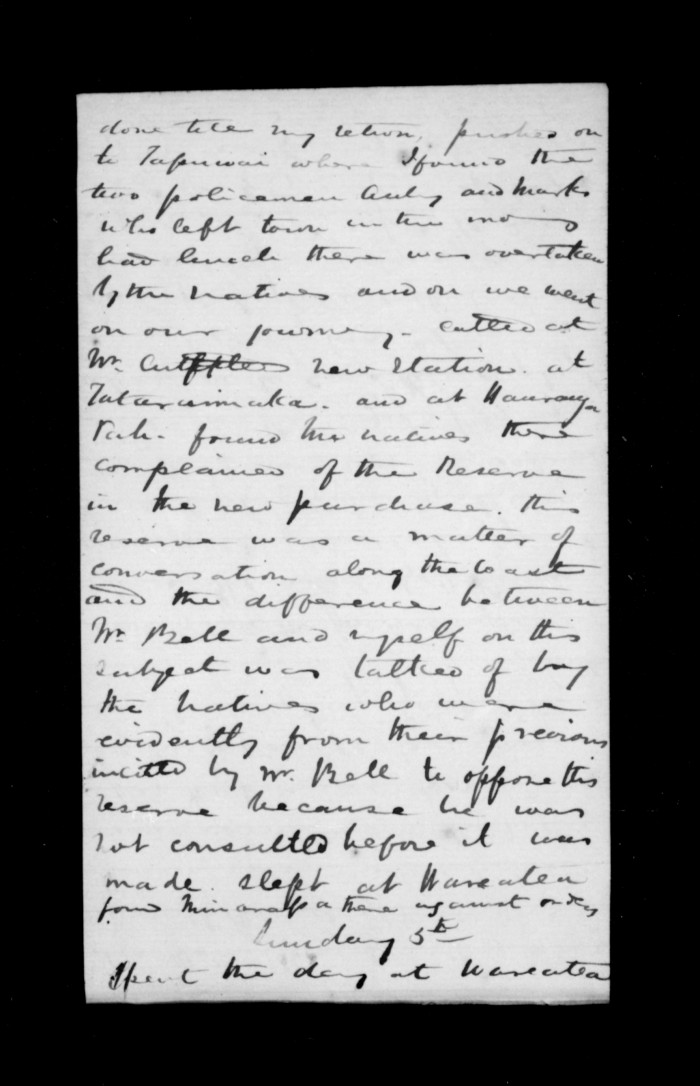 done till my return, pushed on
to Tapuwai where I found the
two policemen and Marks
who left town in the morning
had lunch there was overtaken
by the natives and on we went
on our journey - called at
Mr. new station. at
Tataraimaka. and at Hauranga
Pah. found the natives there
complained of the Reserve
in the new purchase. this
reserve was a matter of
conversation along the Coast
and the difference between
Mr Bell and myself on this
subject was talked of by
the natives who were
evidently from their previous
incited by Mr. Bell to oppose this
reserve because he was
not consulted before it was
made. slept at Wareatea
found there against orders
Sunday 5th
Spent the day at Wareatea